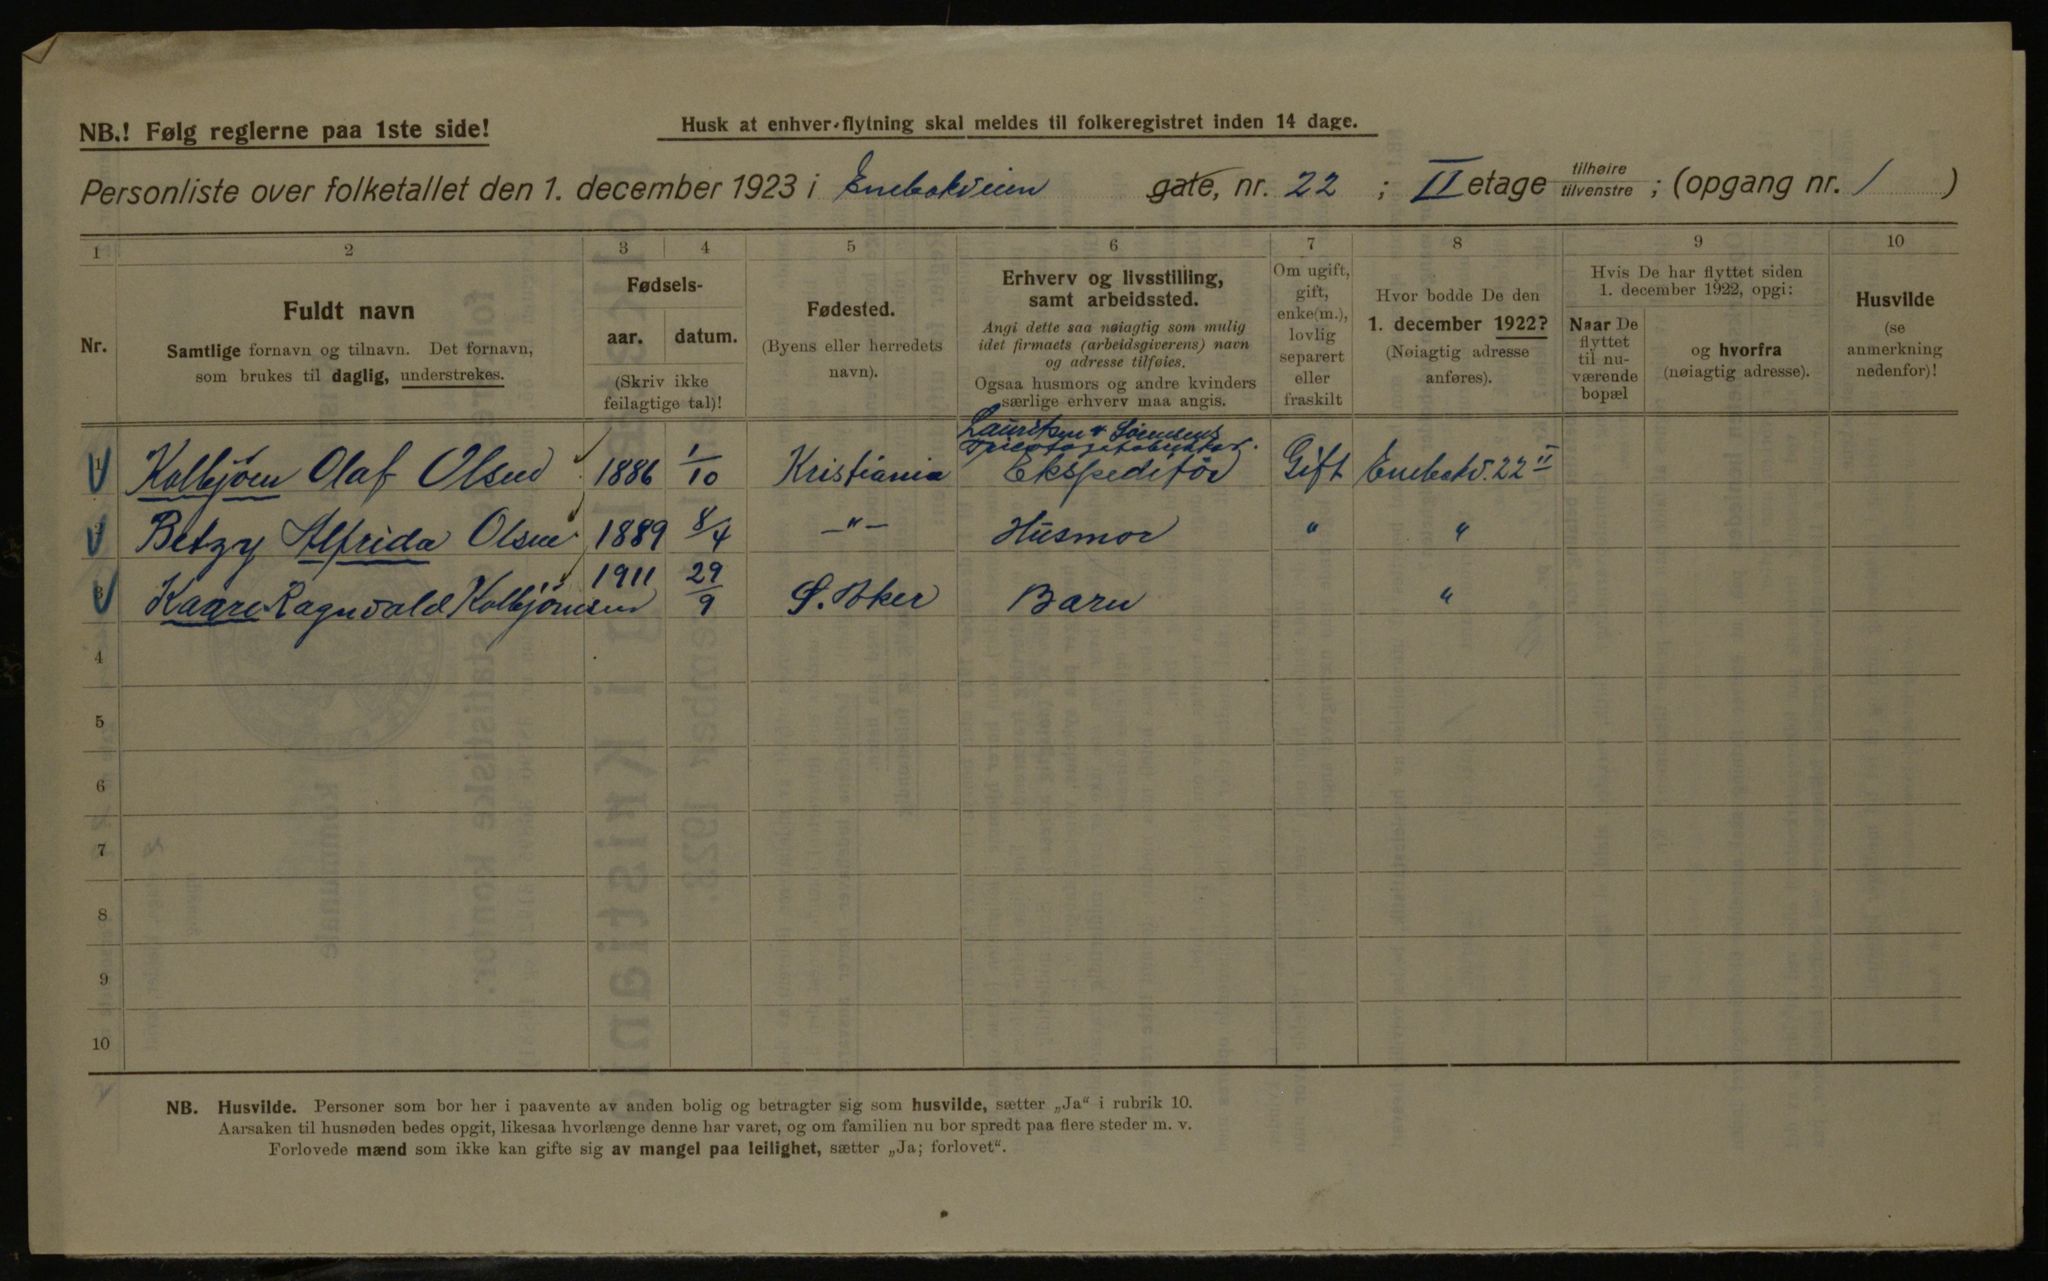 NB.! Følg reglerne paa 1ste side!
Husk at enhver flytning skal meldes til folkeregistret inden 14 dage.
Personliste over folketallet den 1. december 1923 i Enebakveien gate, nr. 22 ; II etage tilhøire tilvenstre ; (opgang nr. 1 )
1 2 3 4 5 6 7 8 9 10
Nr.
Fuldt navn
Samtlige fornavn og tilnavn. Det fornavn,
som brukes til daglig, understrekes.
Fødsels-
aar. datum.
(Skriv ikke
feilagtige tal)!
Fødested.
(Byens eller herredets
navn).
Erhverv og livsstilling,
samt arbeidssted.
Angi dette saa nøiagtig som mulig
idet firmaets (arbeidsgiverens) navn
og adresse tilføies.
Ogsaa husmors og andre kvinders
særlige erhverv maa angis.
Om ugift,
gift,
enke(m.),
lovlig
separert
eller
fraskilt
Hvor bodde De den
1. december 1922?
(Nøiagtig adresse
anføres).
Hvis De har flyttet siden
1. december 1922, opgi:
Naar De
flyttet
til nu-
værende
bopæl
og hvorfra
(nøiagtig adresse).
Husvilde
(se
anmerkning
nedenfor)!
Lauritsen & Sørensens
1 Kolbjørn Olaf Olsen 1886 1/10 Kristiania Ekspeditør Gift Enebakv. 22 II
2 Betzy Alfrida Olsen 1889 8/4 —"— Husmor " "
3 Kaare Ragnvald Kolbjørnsen 1911 29/9 S. Aker Barn "
4
5
6
7
8
9
10
NB. Husvilde. Personer som bor her i paavente av anden bolig og betragter sig som husvilde, sætter „Ja“ i rubrik 10.
Aarsaken til husnøden bedes opgit, likesaa hvorlænge denne har varet, og om familien nu bor spredt paa flere steder m. v.
Forlovede mænd som ikke kan gifte sig av mangel paa leilighet, sætter „Ja; forlovet“.